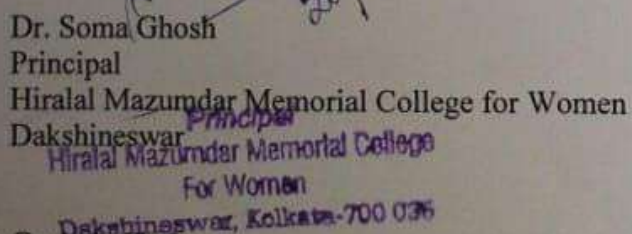 Dr. Soma Ghosh
Principal
Hiralal Mazumdar Memorial College for Women
Dakshineswar
Principal
Hiralal Mazumdar Memorial College
For Women
Dakshineswar, Kolkata-700 036